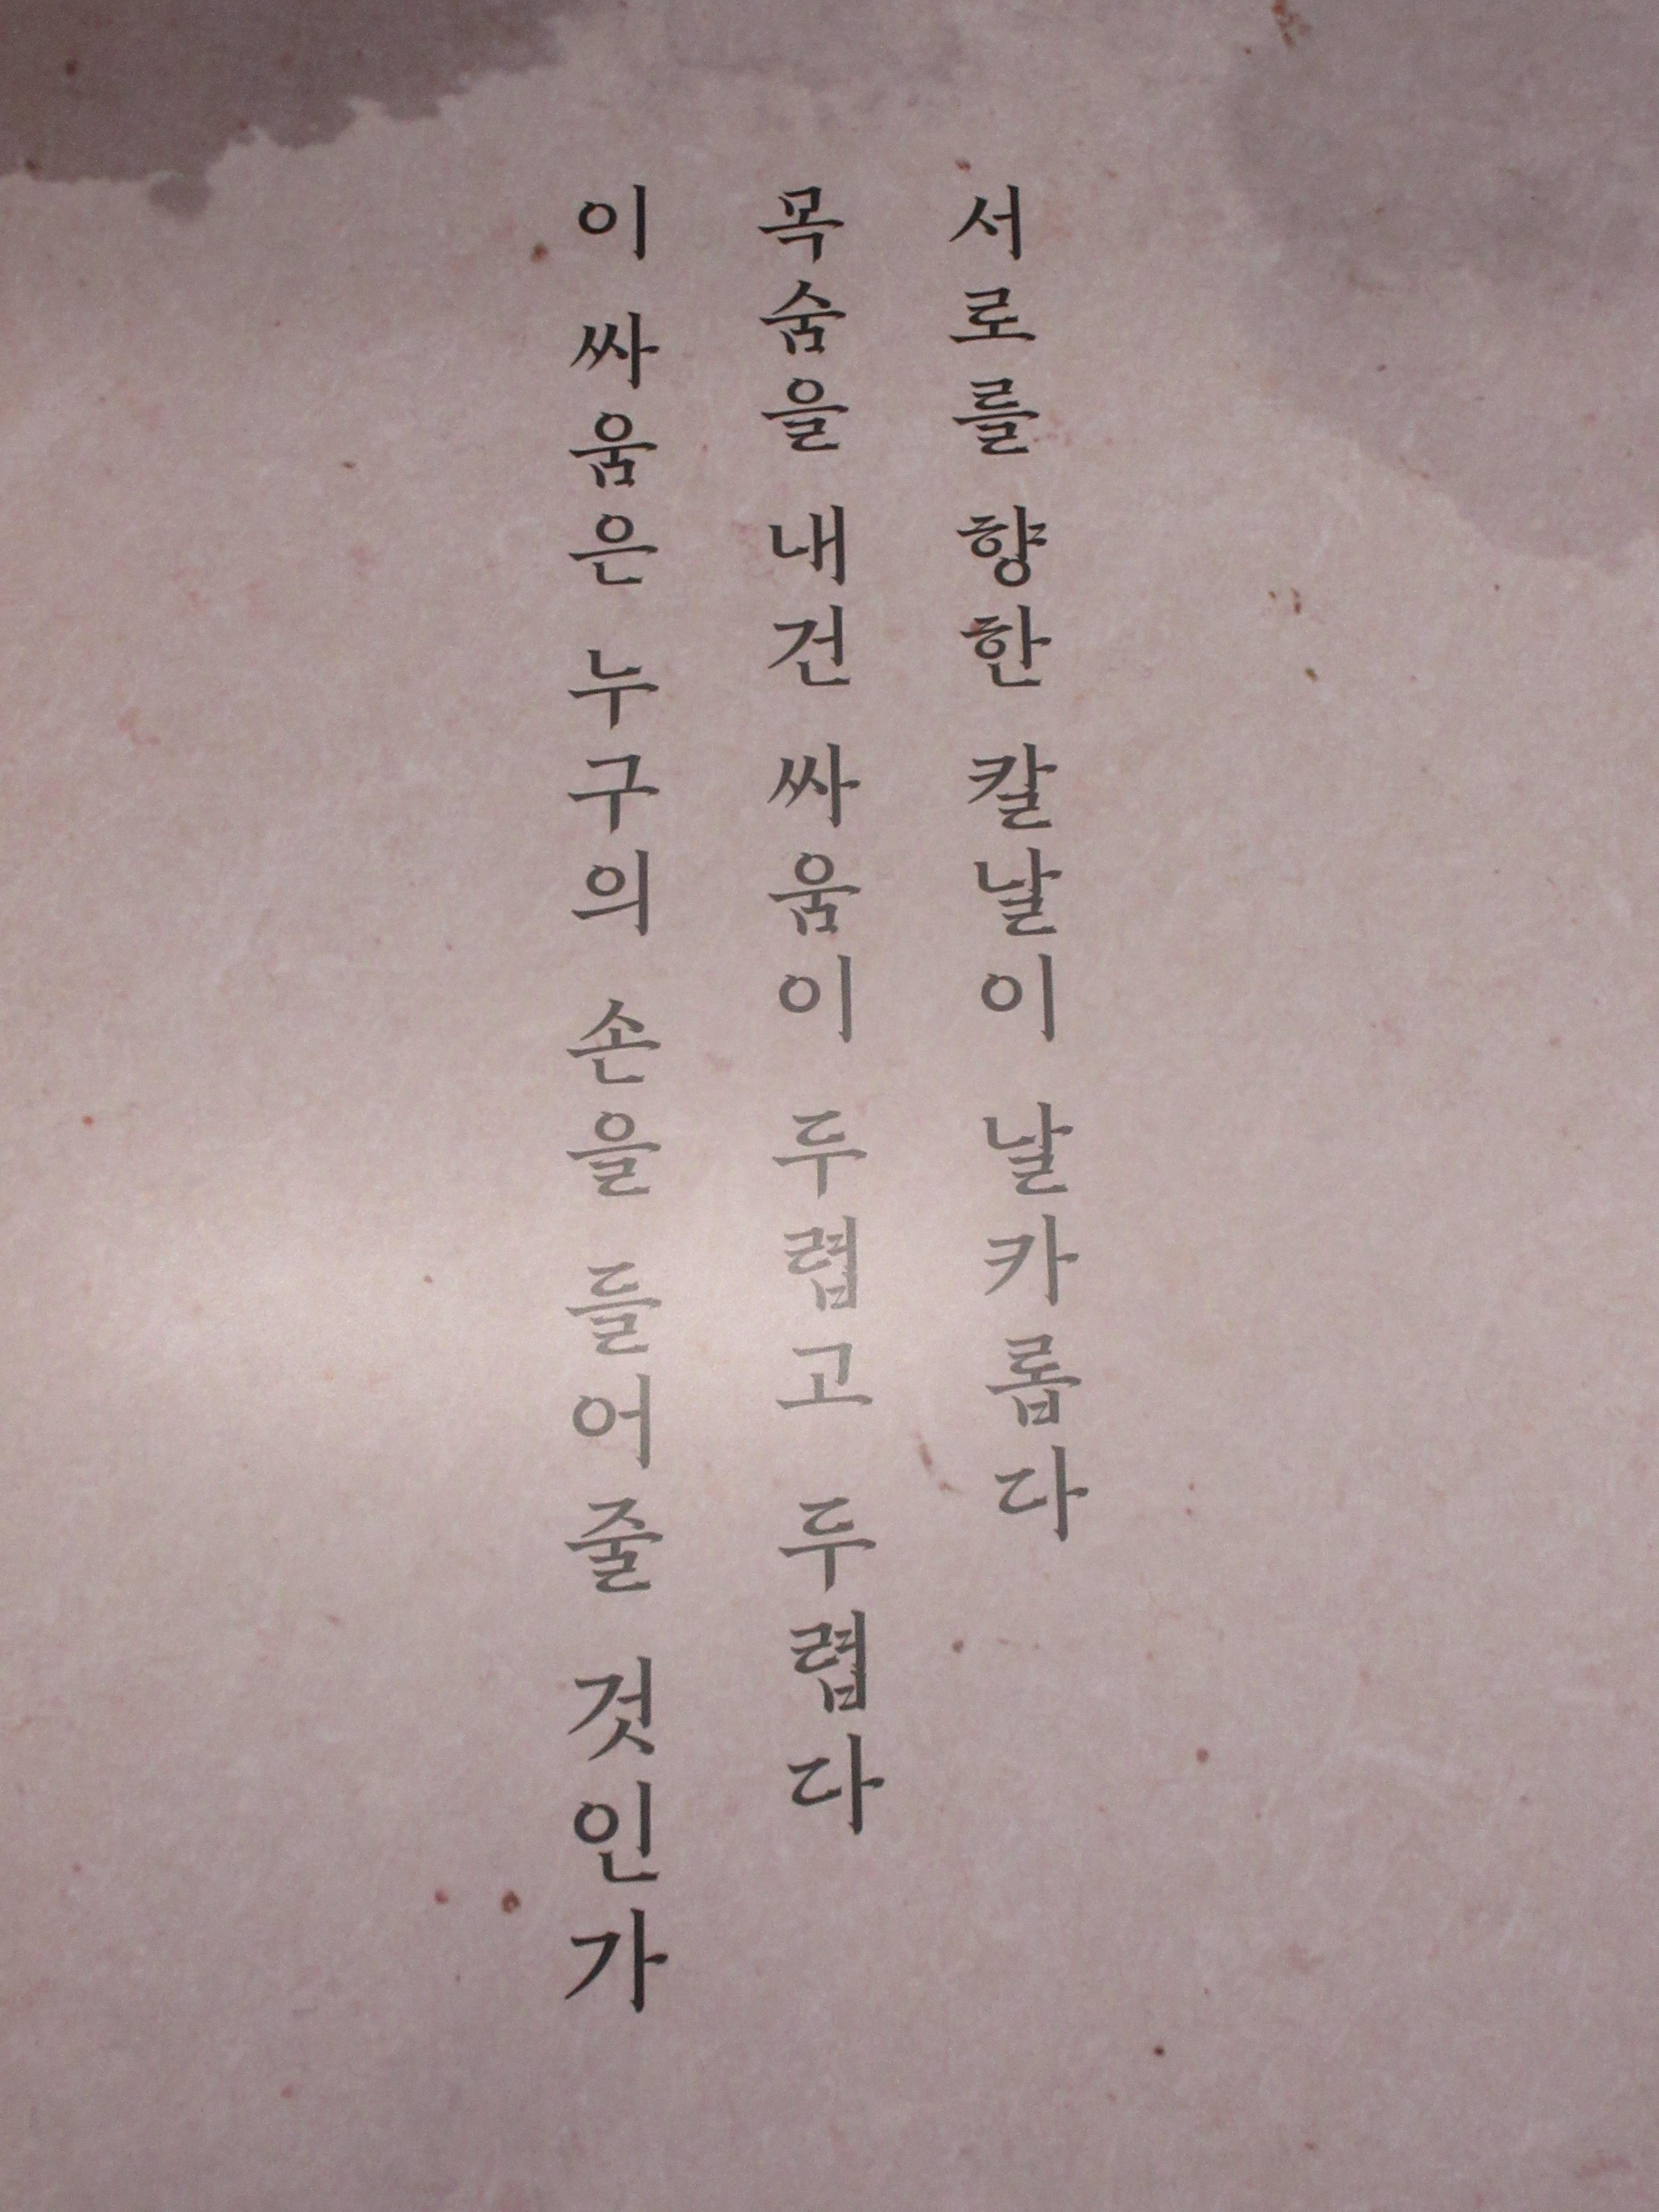 서로를 향한 칼날이 날카롭다
목숨을 내건 싸움이 두렵고 두렵다
이 싸움은 누구의 손을 들어줄 것인가